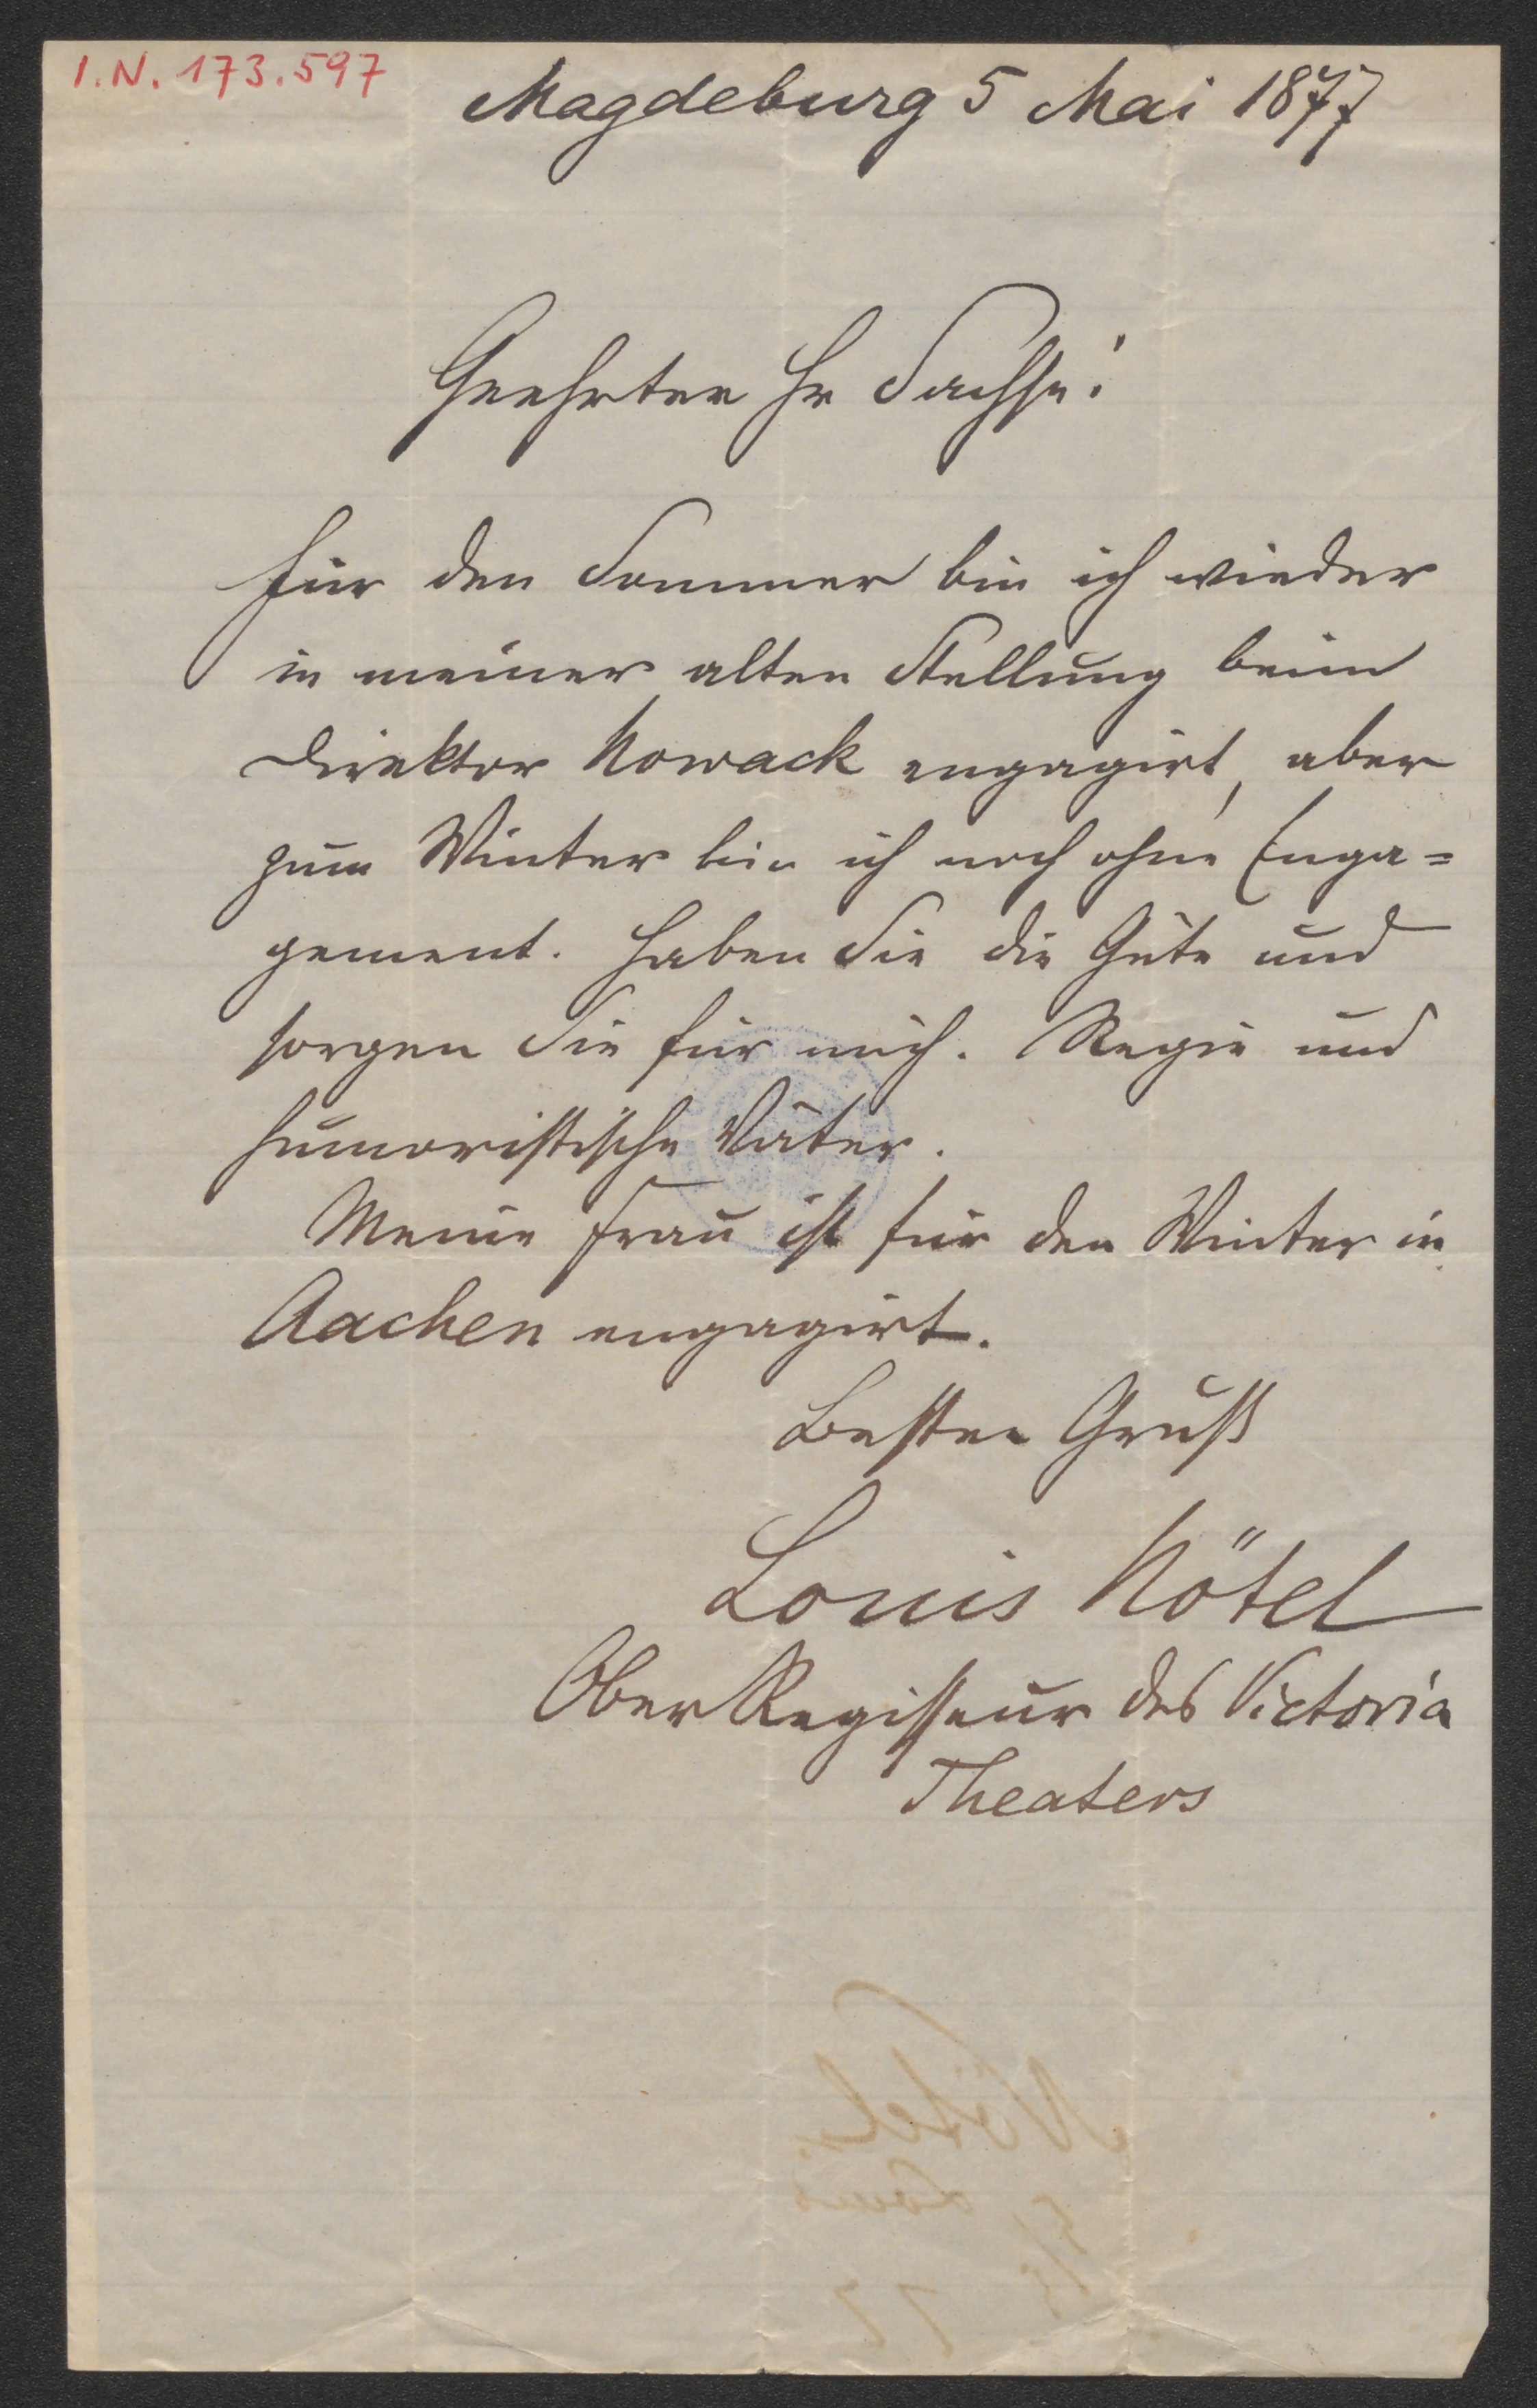 I.N. 173.597
Magdeburg 5 Mai 1877
Geehrter Hr Sachse!
Für den Sommer bin ich wieder
in meiner alten Stellung beim
Direktor Nowack engagirt, aber
zum Winter bin ich noch ohne Enga=
gement. Haben Sie die Güte und
sorgen Sie für mich. Regie und
humoristische Väter.
Meine Frau ist für den Winter in
Aachen engagirt.
Besten Gruß
Louis Nötel
Ober Regisseur des Victoria
Theaters
Nötel
Louis